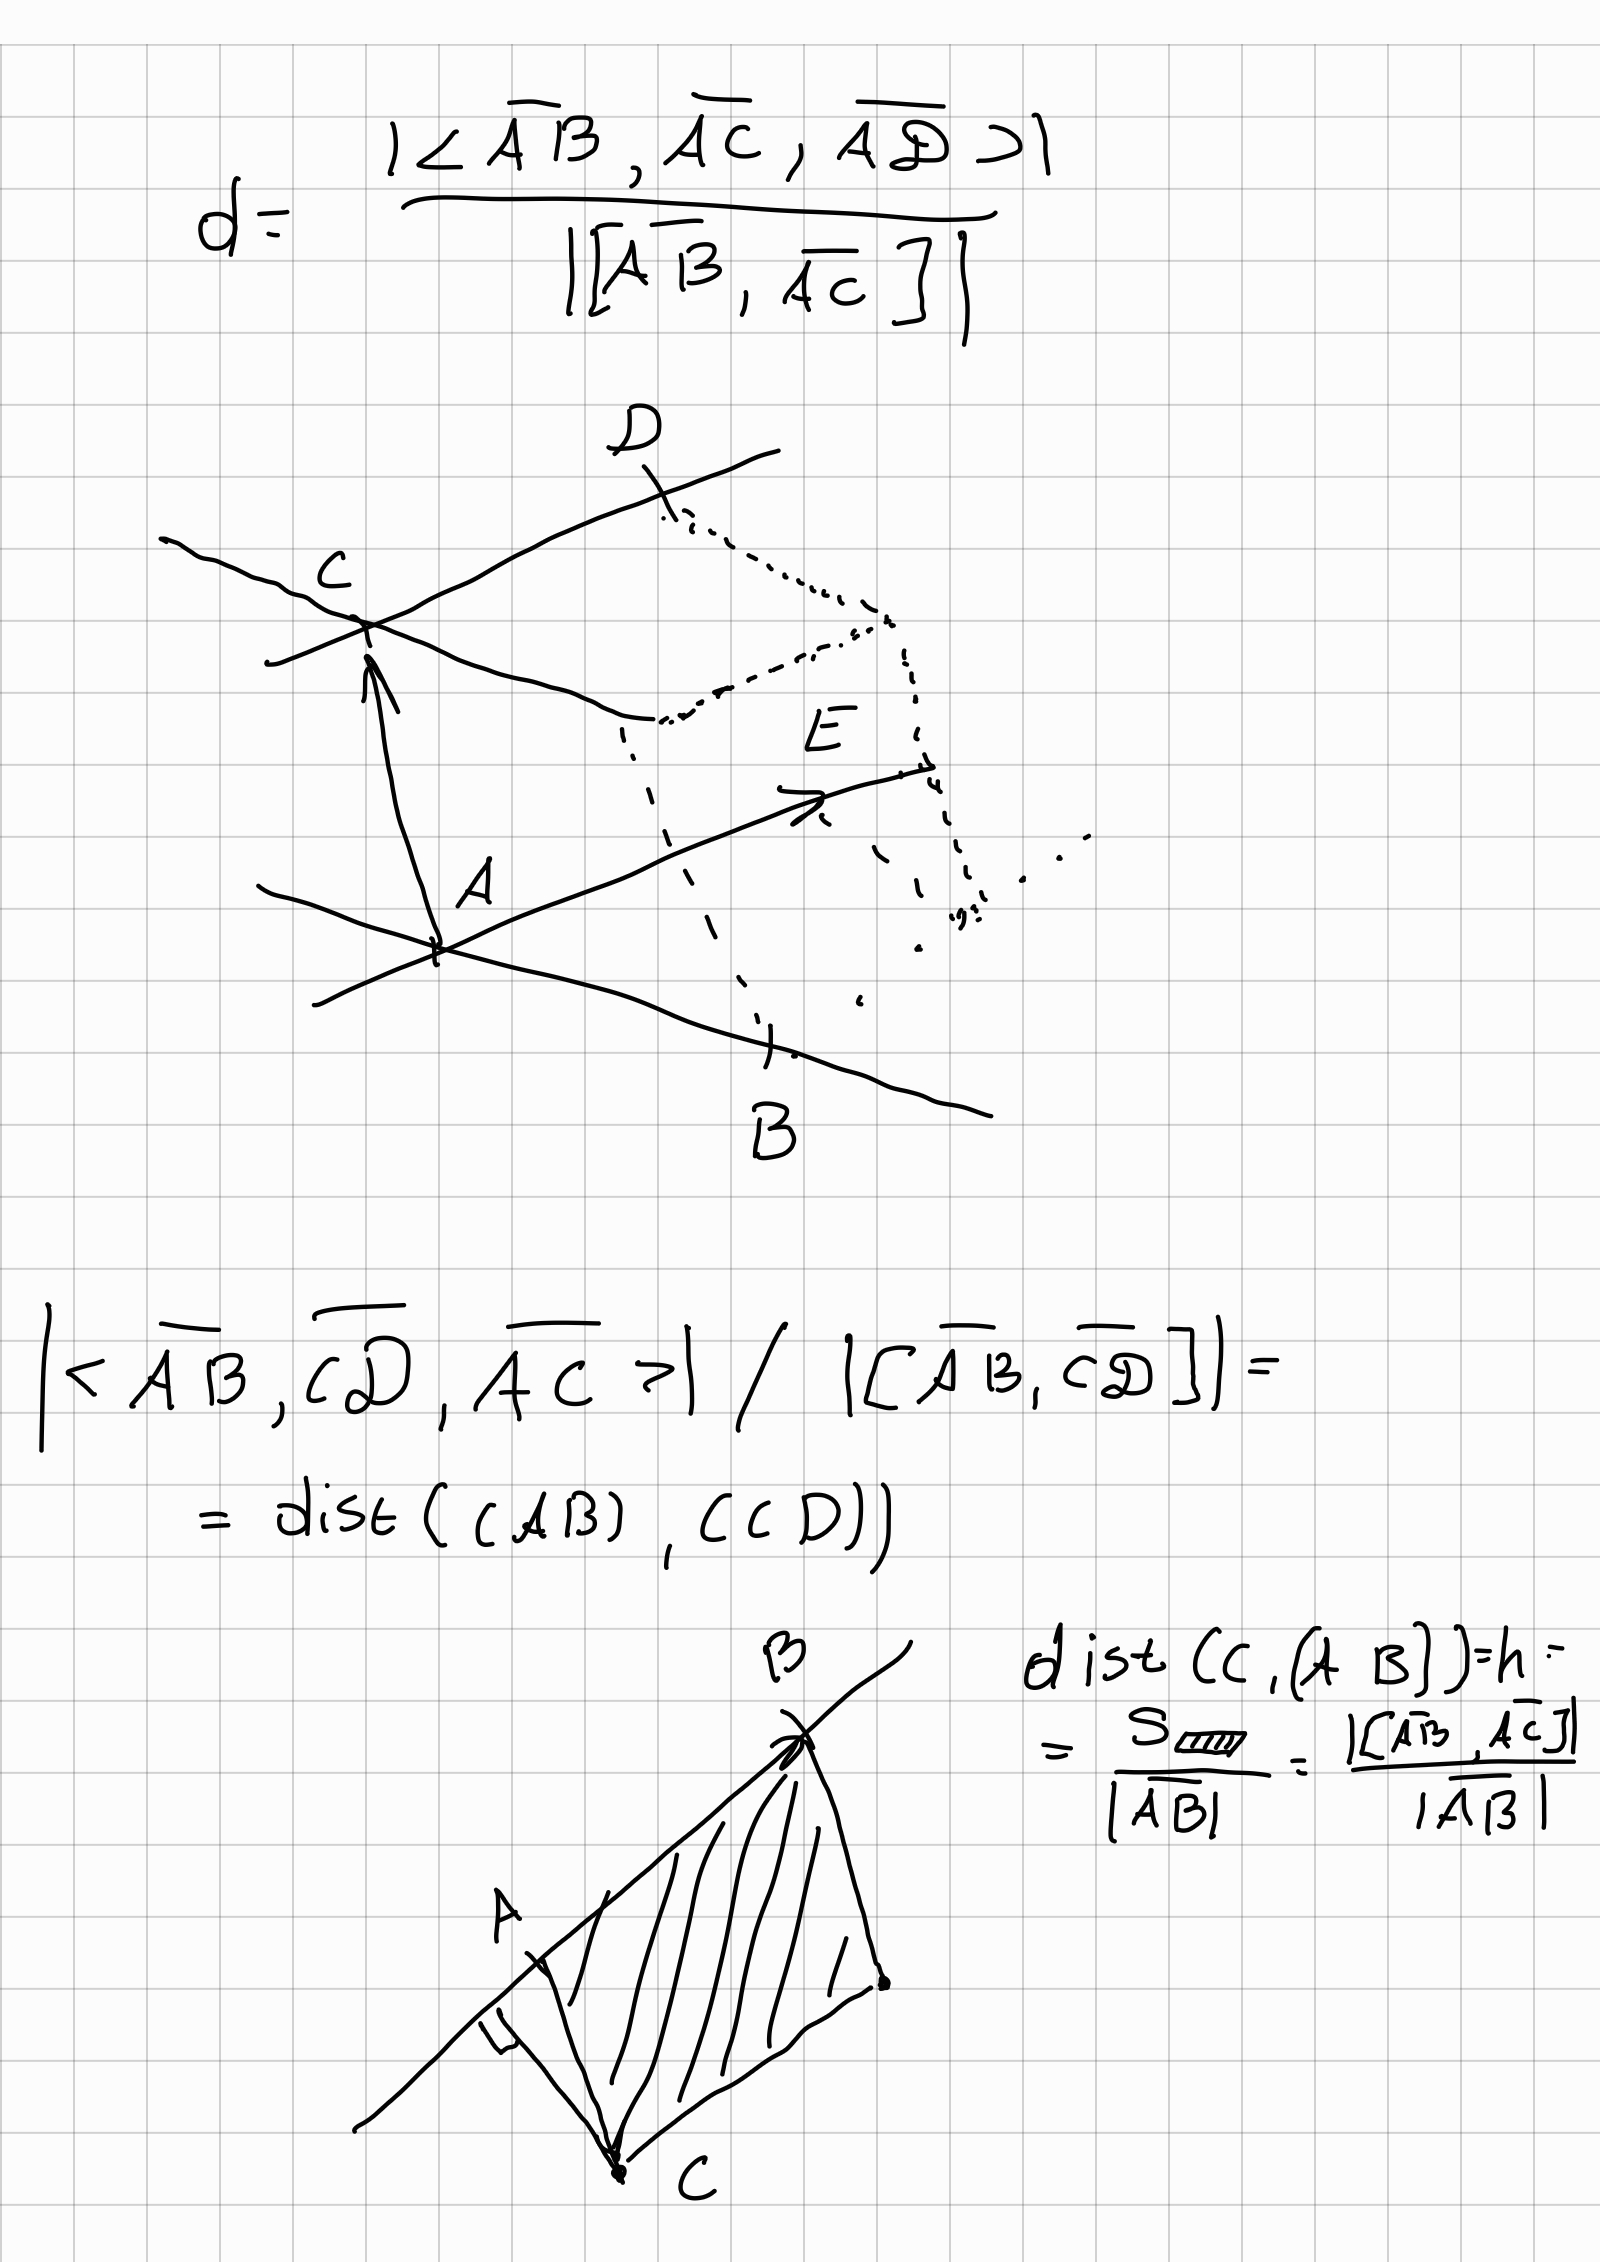 d = |<\overline{AB}, \overline{AC}, \overline{AD}>| / |[\overline{AB}, \overline{AC}]|
D
C
E
A
B
|<\overline{AB}, \overline{CD}, \overline{AC}>| / |[\overline{AB}, \overline{CD}]| =
= dist((AB), (CD))
B
dist(C, (AB)) = h =
= S▱ / |\overline{AB}| = |[\overline{AB}, \overline{AC}]| / |\overline{AB}|
A
C